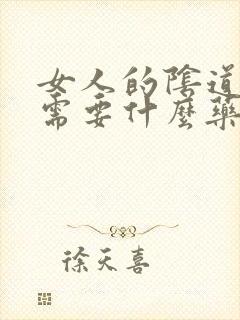 女人的陰道
需要什麼藥
徐天喜